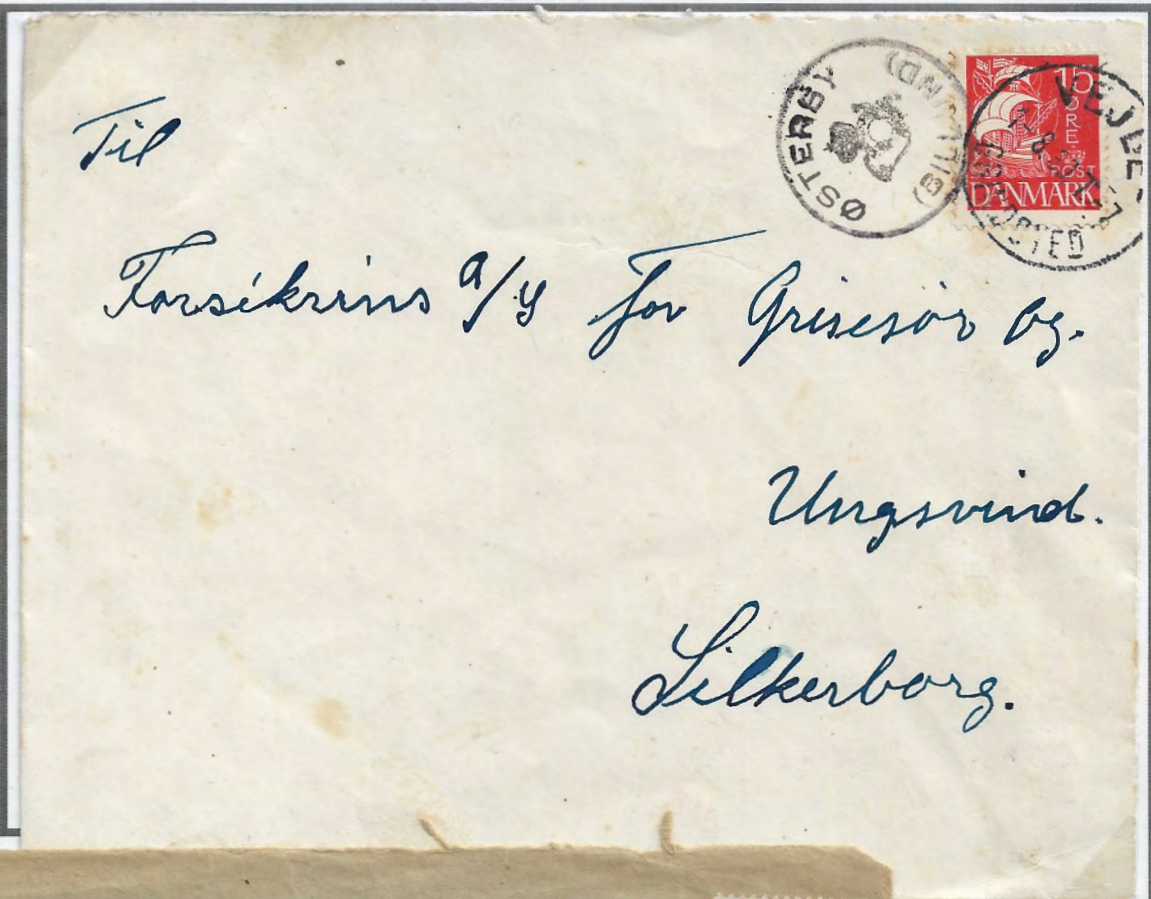 ØSTERBY
(BILLUND)
15
ØRE
POST
DANMARK
VEJLE
Til
Forsikrins A/S for Grisesør og.
Ungsvind.
Silkerborg.